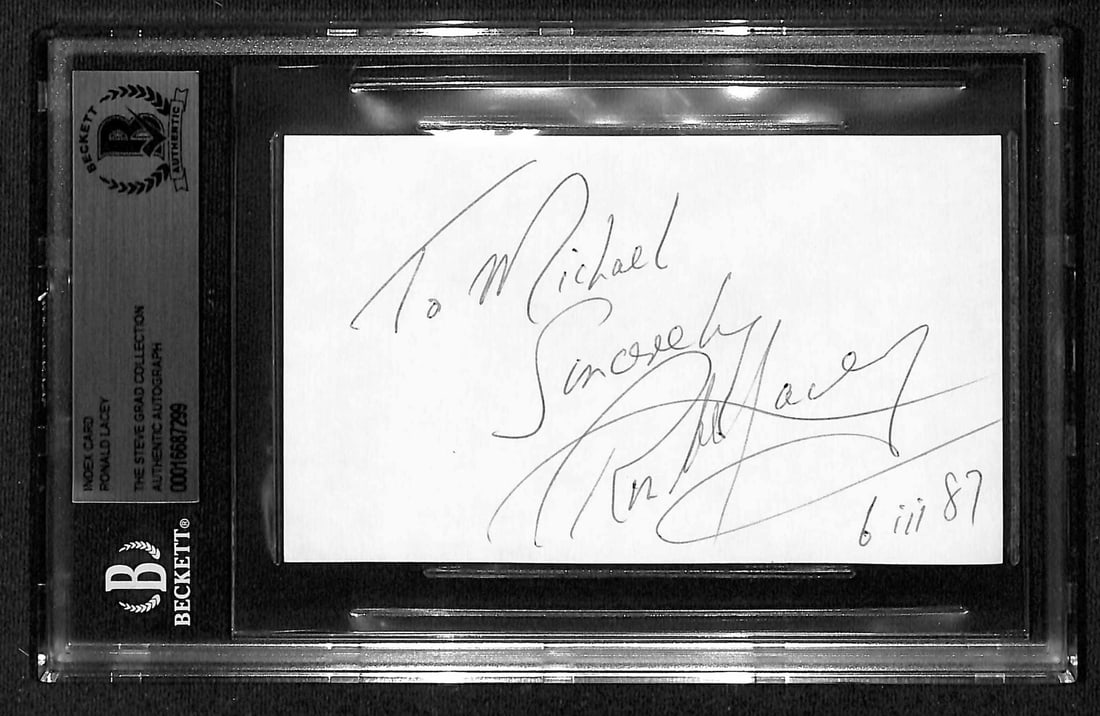 BECKETT
B
AUTHENTIC
INDEX CARD
RONALD LACEY
THE STEVE GRAD COLLECTION
AUTHENTIC AUTOGRAPH
00016687299
B
BECKETT®
To Michael
Sincerely
Ronald Lacey
6 iii 87